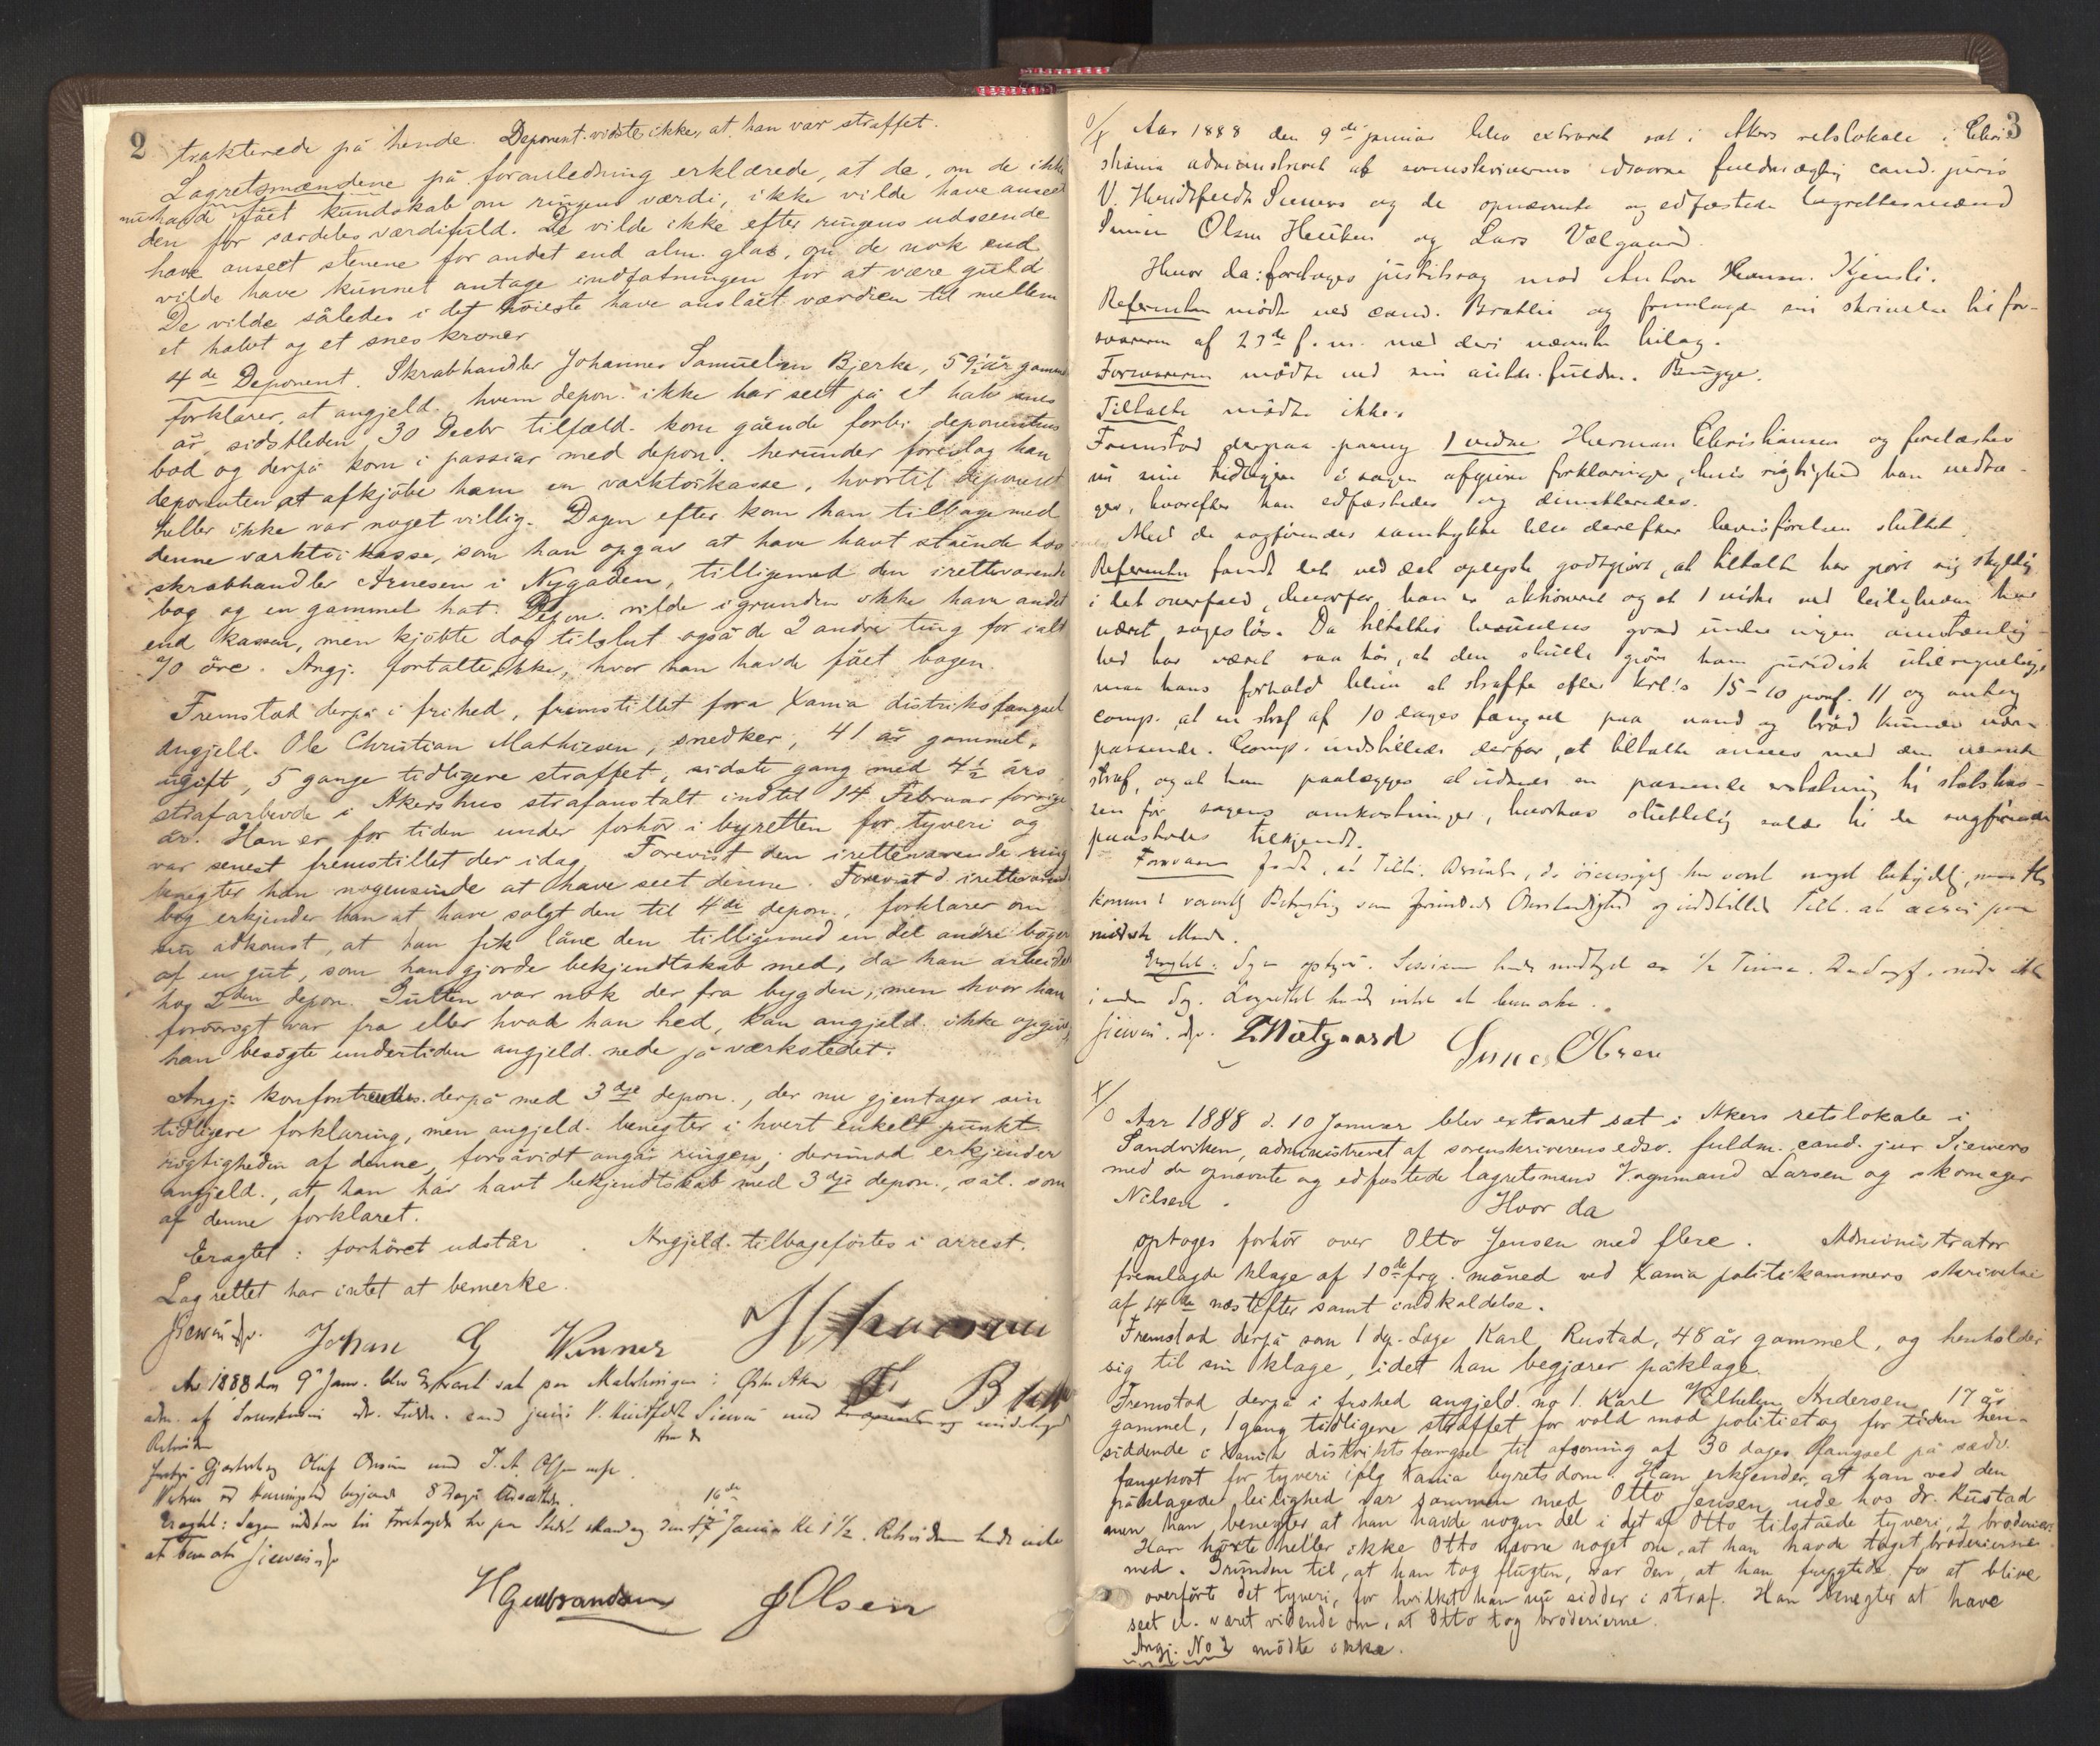 2
trakterede på hende. Deponent. vidste ikke, at han var straffet.
Lagretsmændene på foranledning erklærede, at de, om de ikke
nu havde fået kundskab om ringens værdi, ikke vilde have anseet
den for særdeles værdifuld. De vilde ikke efter ringens udseende
have anseet stenene for andet end alm. glas, om de nok end
vilde have kunnet antage indfatningen for at være guld
De vilde således i det höieste have anslået værdien til mellem
et halvt og et snes kroner
4de Deponent. Skrabhandler Johannes Samuelsen Bjerke, 59½ år gammel
forklarer, at angjeld. hvem depon. ikke har seet på et halv snes
år, sidstleden 30 Decbr tilfæld. kom gående forbi deponentens
bod og derpå kom i passiar med depon. herunder foreslog han
deponenten at afkjöbe ham en værktöikasse, hvortil deponent
heller ikke var noget villig. Dagen efter kom han tilbage med
denne værktöikasse, som han opgav at have havt stående hos
skrabhandler Arnesen i Nygaden, tilligemed den iretteværende
bog og en gammel hat. Depon. vilde igrunden ikke have andet
end kassen, men kjöbte dog tilslut også de 2 andre ting for ialt
70 öre. Angj. fortalte ikke, hvor han havde fået bogen.
Fremstod derpå i frihed, fremstillet fra Xania distriktsfængsel
angjeld. Ole Christian Mathiesen, snedker, 41 år gammel,
ugift, 5 gange tidligere straffet, sidste gang med 4½ års
strafarbeide i Akershus strafanstalt indtil 14 Februar forrige
år. Han er for tiden under forhör i byretten for tyveri og
var senest fremstillet der idag. Forevist den iretteværende ring
benegter han nogensinde at have seet denne. Forevist d. iretteværende
bog erkjender han at have solgt den til 4de depon., forklarer om
sin adkomst, at han fik låne den tilligemed en del andre böger
af en gut, som han gjorde bekjendtskab med, da han arbeidet
hos 2den depon. Gutten var nok der fra bygden, men hvor han
forövrigt var fra eller hvad han hed, kan angjeld. ikke opgive,
han besögte undertiden angjeld. nede på værkstedet.
Angj. konfronteredes derpå med 3die depon., der nu gjentager sin
tidligere forklaring, men angjeld. benegter i hvert enkelt punkt
rigtigheden af denne, forsåvidt angår ringen; derimod erkjender
angjeld., at han har havt bekjendtskab med 3die depon., sål. som
af denne forklaret.
Eragtet: forhöret udstår. Angjeld. tilbageförtes i arrest.
Lagrettet har intet at bemerke.
Siewers
Johan G Winner
Ar 1888 den 9 Janr. blev Extraret sat paa
adm. af Sorenskriveren edsv. fuldm. cand juris V. Huitfeldt Siewers med
Hvor da
Olaf
og J. A. Olsen
8 Dages
Eragtet: Sagen udstaar til 17 Januar Kl
at bemærke Siewers
H Gulbrandsen J Olsen
3
0/X Aar 1888 den 9de januar blev extraret sat i Akers retslokale i Chri
stiania administreret af sorenskriverens edsvorne fuldmægtig cand. juris
V. Huidtfeldt Siewers og de opnævnte og edfæstede lagrettesmænd
Simen Olsen og Lars Vælgaard.
Hvor da: foretoges justitssag mod Anton Hansen Kjensli.
Referenten mödte ved cand. Bratlie og fremlagde sin skrivelse til for-
svareren af 23de f. m. med deri nævnte bilag.
Forsvareren mödte ved sin autor. fuldm. Brygge.
Tiltalte mödte ikke.
Fremstod derpaa paany 1 vidne Herman Christiansen og forelæstes
nu sine tidligere i sagen afgivne forklaringer, hvis rigtighed han vedta-
ger, hvorefter han edfæstedes og dimitteredes.
Med de sagförendes samtykke blev derefter bevisförelsen sluttet.
Referenten fandt det ved det oplyste godtgjort, at tiltalte har gjort sig skyldig
i det overfald, hvorfor han er aktioneret og at 1 vidne ved leiligheden har
været sageslös. Da tiltaltes beruselses grad under ingen omstændig-
hed har været saa höi, at den skulde gjöre ham juridisk utilregnelig,
maa hans forhold blive at straffe efter krl's 15-10 jevnf. 11 og antog
comp. at en straf af 10 dages fængsel paa vand og bröd kunde være
passende. Comp. indstillede derfor, at tiltalte ansees med den nævnte
straf, og at han paalægges at udrede en passende erstatning til statskas-
sen for sagens omkostninger, hvorhos skikkelig salær til de sagförende
paastodes tilkjendt.
Forsvareren fandt, at Tilt.
paa
mildeste Maade.
Eragtet: Sagen optages. Sessionen havde medtaget ca ½ Time.
i anden Sag. Lagrettet havde intet at bemærke.
Siewers L Wælgaard Simen Olsen
X/0 Aar 1888 d. 10 Januar blev extraret sat i Akers retslokale i
Sandviken, administreret af sorenskriverens edsv. fuldm. cand. jur Siewers
med de opnævnte og edfæstede lagretsmænd Vognmand Larsen og skomager
Nilsen. Hvor da
optoges forhör over Otto Jensen med flere. Administrator
fremlagde klage af 10de frg. måned ved Xania politikammers skrivelse
af 14de næstefter samt indkaldelse.
Fremstod derpå som 1 dp. Læge Karl Rustad, 48 år gammel, og henholder
sig til sin klage, idet han begjærer påklage.
Fremstod derpå i frihed angjeld. no 1. Karl Vilhelm Andersen 17 år
gammel, 1 gang tidligere straffet for vold mod politiet og for tiden hen-
siddende i Xania distrikts fængsel til afsoning af 30 dages fængsel på sædv.
fangekost for tyveri iflg Xania byrets dom. Han erkjender, at han ved den
påklagede leilighed var sammen med Otto Jensen ude hos dr. Rustad
men han benegter at han havde nogen del i det af Otto tilståede tyveri, 2 broderier.
Han hörte heller ikke Otto nævne noget om, at han havde taget broderierne
med. Grunden til, at han tog flugten, var den, at han frygtede for at blive
overfört det tyveri, for hvilket han nu sidder i straf. Han benegter at have
seet el. været vidende om, at Otto tog broderierne.
Angj. No 2 mödte ikke.